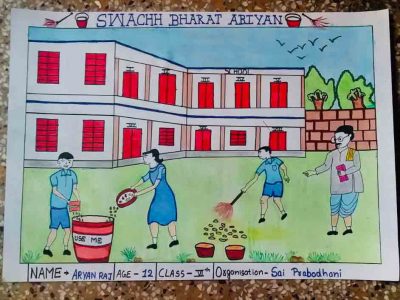 SWACHH BHARAT ABIYAN
SCHOOL
USE ME
NAME → ARYAN RAJ AGE - 12 CLASS - VIth Organisation - Sai Prabodhani